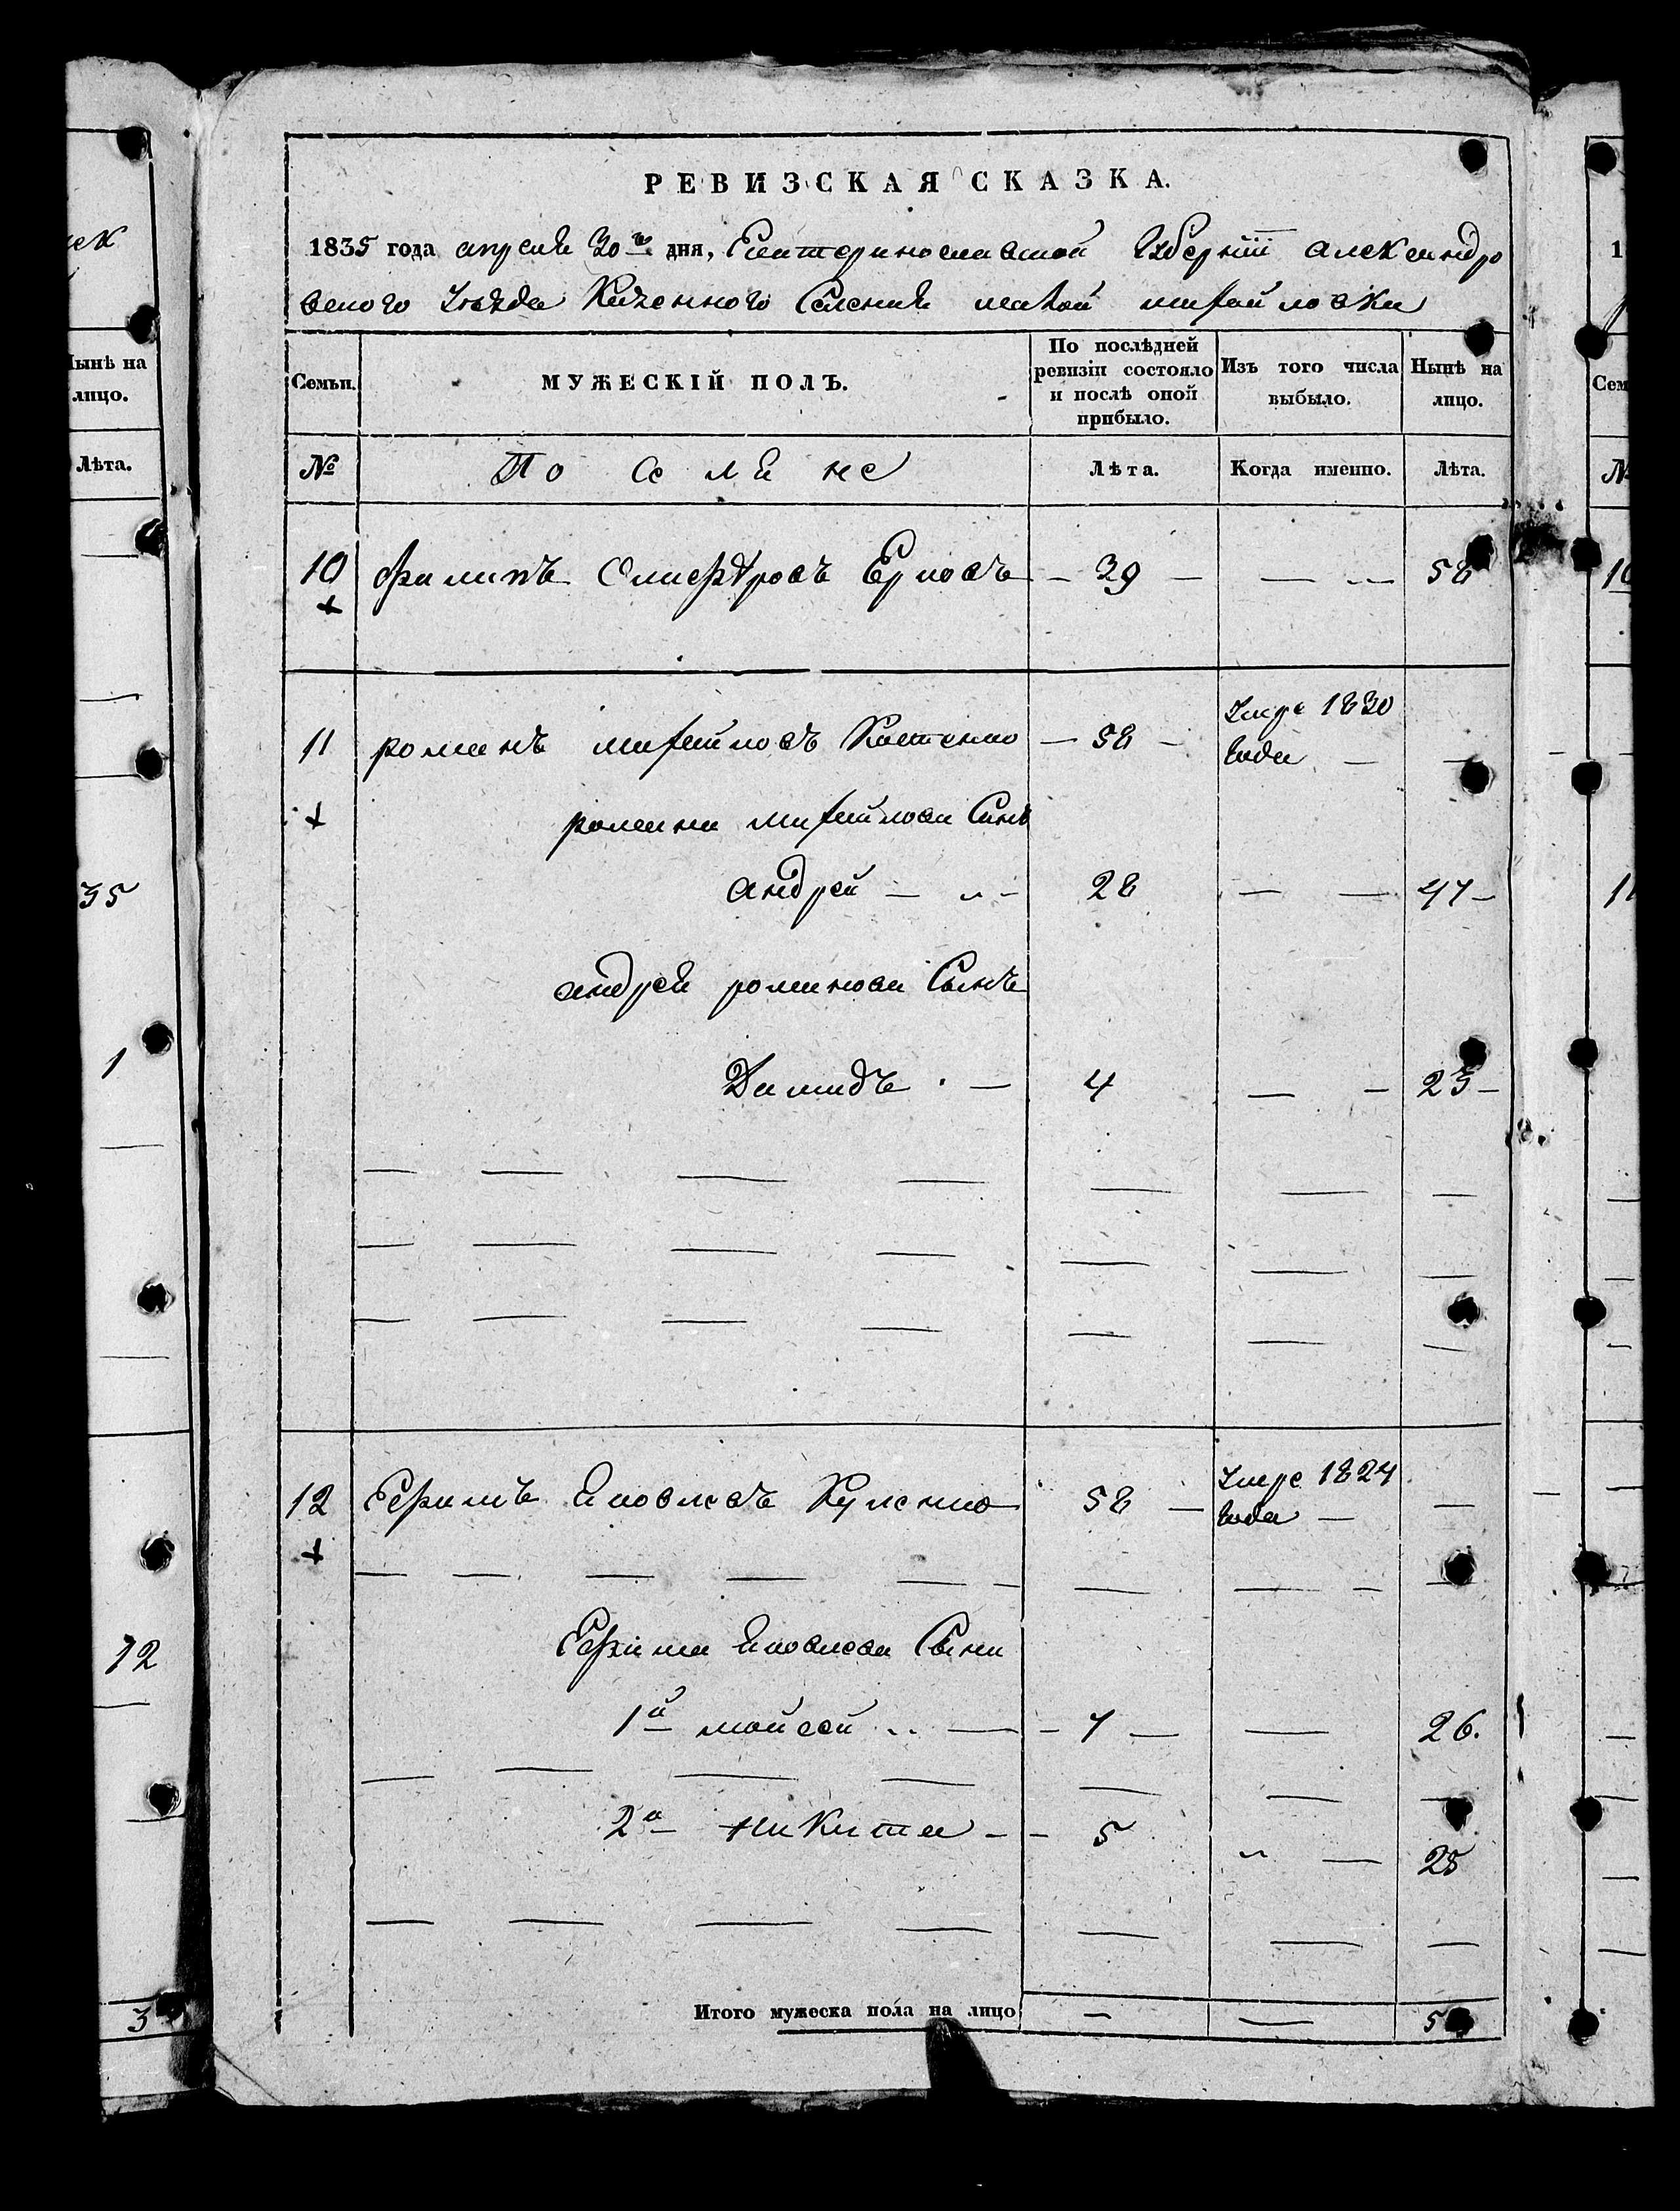 РЕВИЗСКАЯ СКАЗКА.
1835 года апреля 30го дня, Екатеринославской Губерніи александро
вского Уезда Казенного Селения малой михайловки
Семьи.
МУЖЕСКІЙ ПОЛЪ.
По послѣдней
ревизіи состояло
и послѣ оной
прибыло.
Изъ того числа
выбыло.
Нынѣ на
лицо.
№
Поселяне
Лѣта.
Когда именно.
Лѣта.
10 филипъ Олиферовъ — 39 — — — 58
11 романъ михайловъ Костенко — 58 — Умре 1830
года — —
романа михайлова Синъ
андрей — 28 — — 47 —
андрея романова Сынъ
Дамидъ — 4 — — 23 —
12 Ефимъ Яковлевъ Куленко 58 — Умре 1824
года — —
Ефима Яковлева Сыни
1й мойсей — — 7 — — 26.
2й никита — — 5 — 25
Итого мужеска пола на лицо — — 5
Нынѣ на
лицо.
Лѣта.
35
1
12
3
1
Сем
10
11